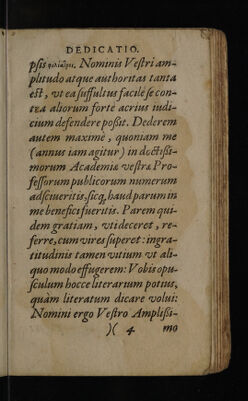 DEDICATIO.
psis Nominis Vestri am-
plitudo atque authoritas tanta
est, vt ea suffultus facile se con-
tra aliorum forte acrius iudi-
cium defendere poßit. Dederem
autem maximè, quoniam me
(annus iam agitur) in doctißi-
morum Academiæ vestræ Pro-
fessorum publicorum numerum
adsciueritis, sicq; haud parum in
me benefici fueritis. Parem qui-
dem gratiam, vti deceret, re-
ferre, cum vires superet: ingra-
titudinis tamen vitium vt ali-
quo modo effugerem: Vobis opu-
sculum hocce literarium potius,
quàm literatum dicare volui:
Nomini ergo Vestro Amplißi-
)( 4 mo